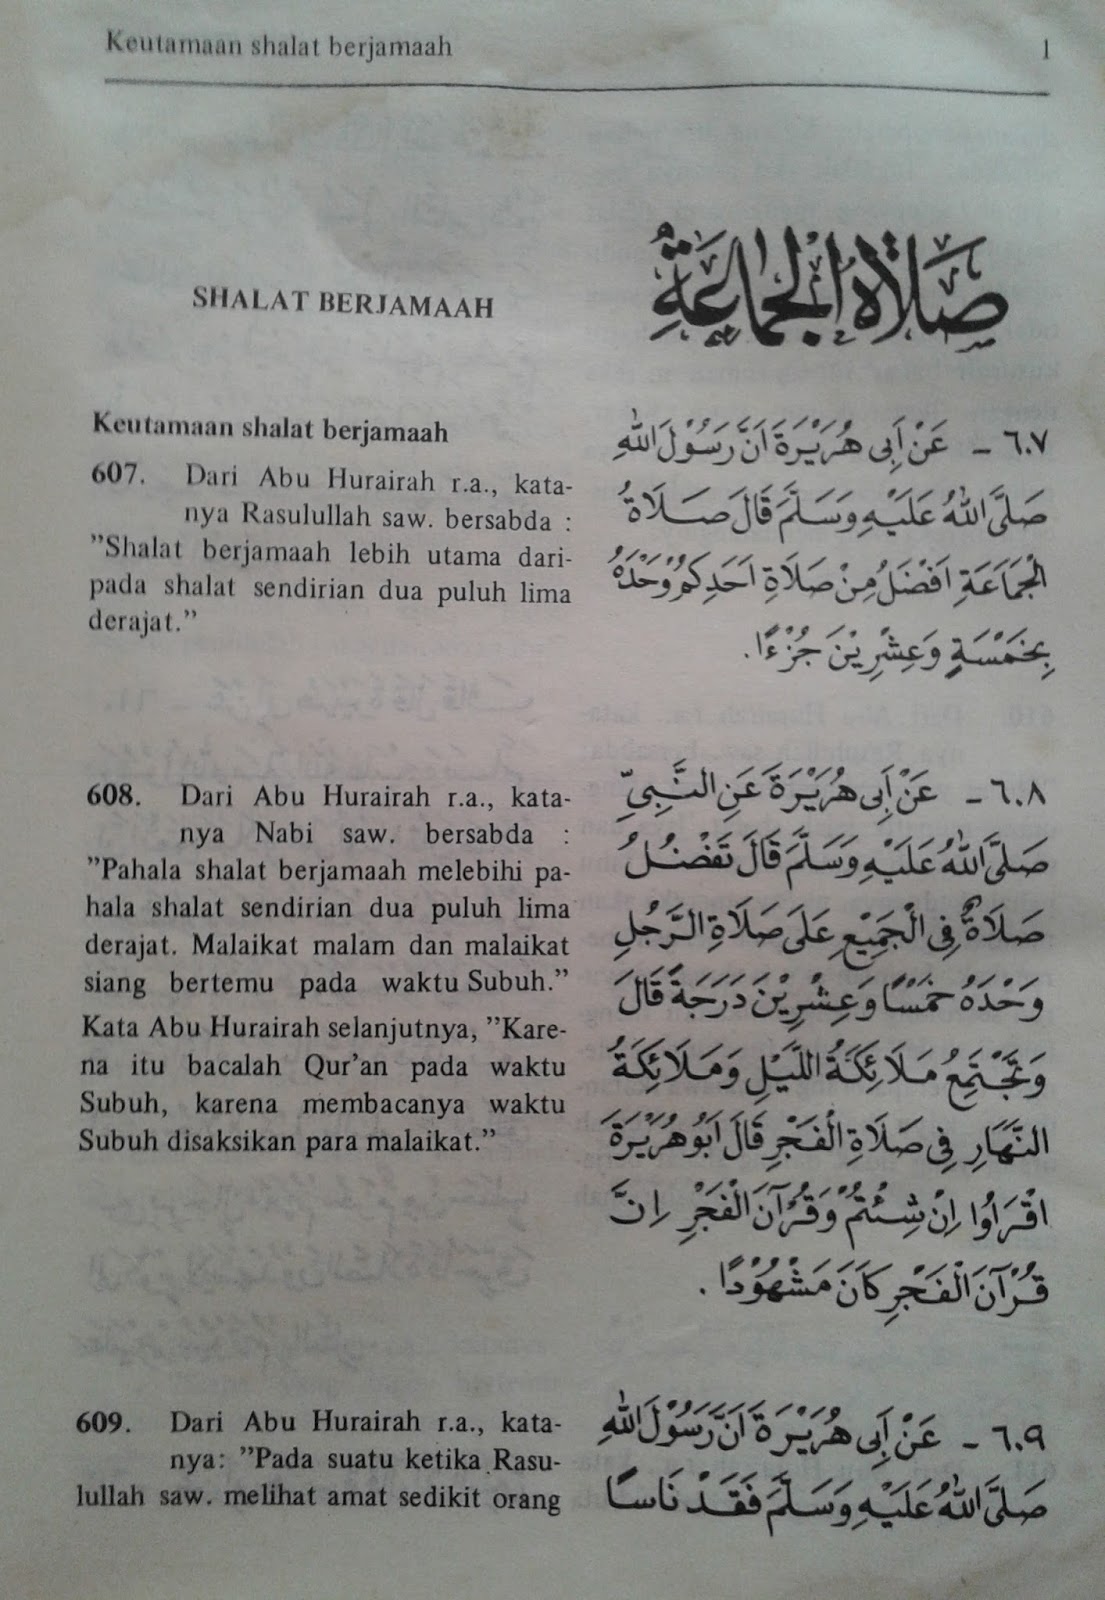 Keutamaan shalat berjamaah 1
SHALAT BERJAMAAH
صَلَاةُ الْجَمَاعَةِ
Keutamaan shalat berjamaah
607. Dari Abu Hurairah r.a., kata-
nya Rasulullah saw. bersabda :
”Shalat berjamaah lebih utama dari-
pada shalat sendirian dua puluh lima
derajat.”
٦٠٧ - عَنْ اَبِى هُرَيْرَةَ اَنَّ رَسُوْلَ اللهِ
صَلَّى اللهُ عَلَيْهِ وَسَلَّمَ قَالَ صَلَاةُ
الْجَمَاعَةِ اَفْضَلُ مِنْ صَلَاةِ اَحَدِكُمْ وَحْدَهُ
بِخَمْسَةٍ وَعِشْرِيْنَ جُزْءًا.
608. Dari Abu Hurairah r.a., kata-
nya Nabi saw. bersabda :
”Pahala shalat berjamaah melebihi pa-
hala shalat sendirian dua puluh lima
derajat. Malaikat malam dan malaikat
siang bertemu pada waktu Subuh.”
Kata Abu Hurairah selanjutnya, ”Kare-
na itu bacalah Qur’an pada waktu
Subuh, karena membacanya waktu
Subuh disaksikan para malaikat.”
٦٠٨ - عَنْ اَبِى هُرَيْرَةَ عَنِ النَّبِىِّ
صَلَّى اللهُ عَلَيْهِ وَسَلَّمَ قَالَ تَفْضُلُ
صَلَاةٌ فِى الْجَمِيْعِ عَلَى صَلَاةِ الرَّجُلِ
وَحْدَهُ خَمْسًا وَعِشْرِيْنَ دَرَجَةً قَالَ
وَتَجْتَمِعُ مَلَائِكَةُ اللَّيْلِ وَمَلَائِكَةُ
النَّهَارِ فِى صَلَاةِ الْفَجْرِ قَالَ اَبُو هُرَيْرَةَ
اقْرَاُوا اِنْ شِئْتُمْ وَقُرْآنَ الْفَجْرِ اِنَّ
قُرْآنَ الْفَجْرِ كَانَ مَشْهُوْدًا .
609. Dari Abu Hurairah r.a., kata-
nya: ”Pada suatu ketika Rasu-
lullah saw. melihat amat sedikit orang
٦٠٩ - عَنْ اَبِى هُرَيْرَةَ اَنَّ رَسُوْلَ اللهِ
صَلَّى اللهُ عَلَيْهِ وَسَلَّمَ فَقَدْ نَاسًا